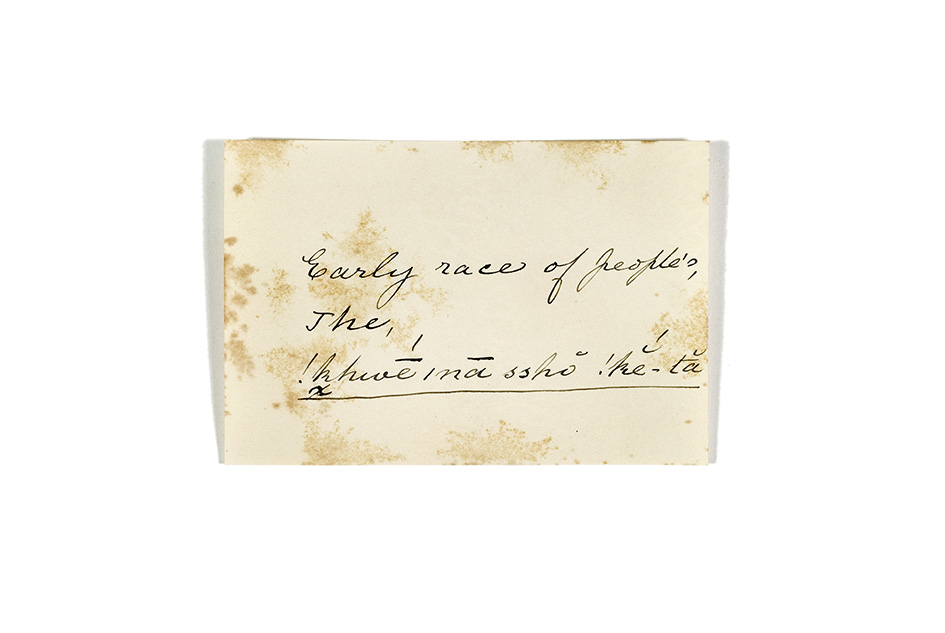 Early race of people's,
The,
!k͓hwḗ ǀnā sshŏ ǃkĕ́-tă